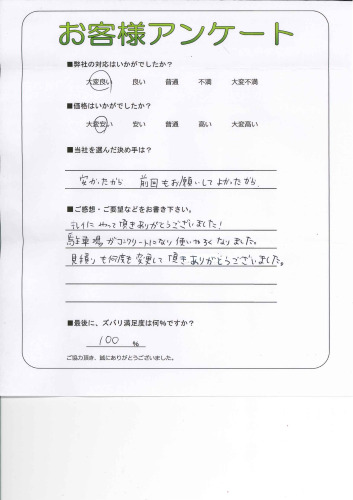 お客様アンケート
■弊社の対応はいかがでしたか?
大変良い 良い 普通 不満 大変不満
■価格はいかがでしたか?
大変安い 安い 普通 高い 大変高い
■当社を選んだ決め手は?
安かったから 前回もお願いしてよかったから
■ご感想・ご要望などをお書き下さい。
キレイにやって頂きありがとうございました!
駐車場がコンクリートになり使いやすくなりました。
見積りも何度も変更して頂きありがとうございました。
■最後に、ズバリ満足度は何%ですか?
100 %
ご協力頂き、誠にありがとうございました。